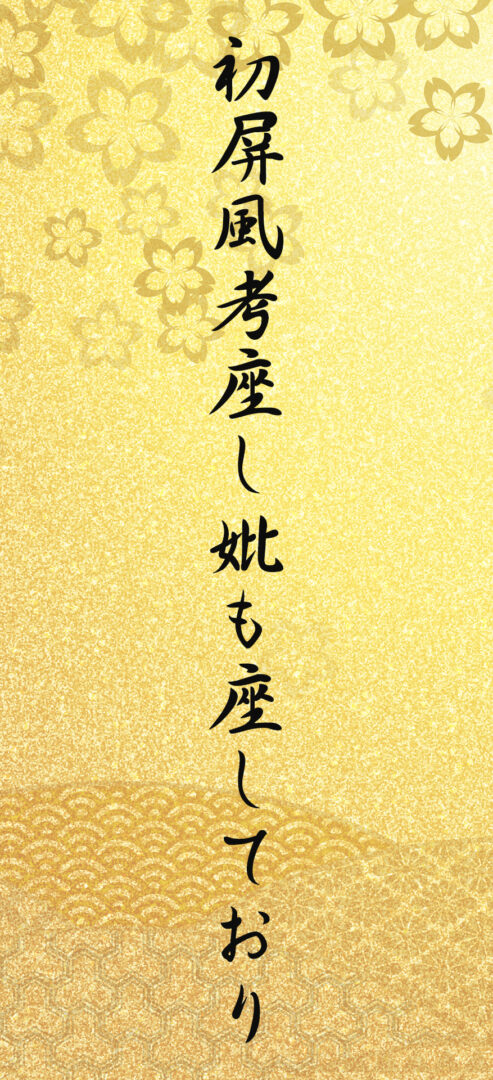 初屏風考座し妣も座しており